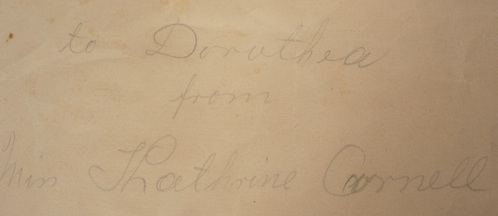 to Dorothea
from
Miss Kathrine Cornell